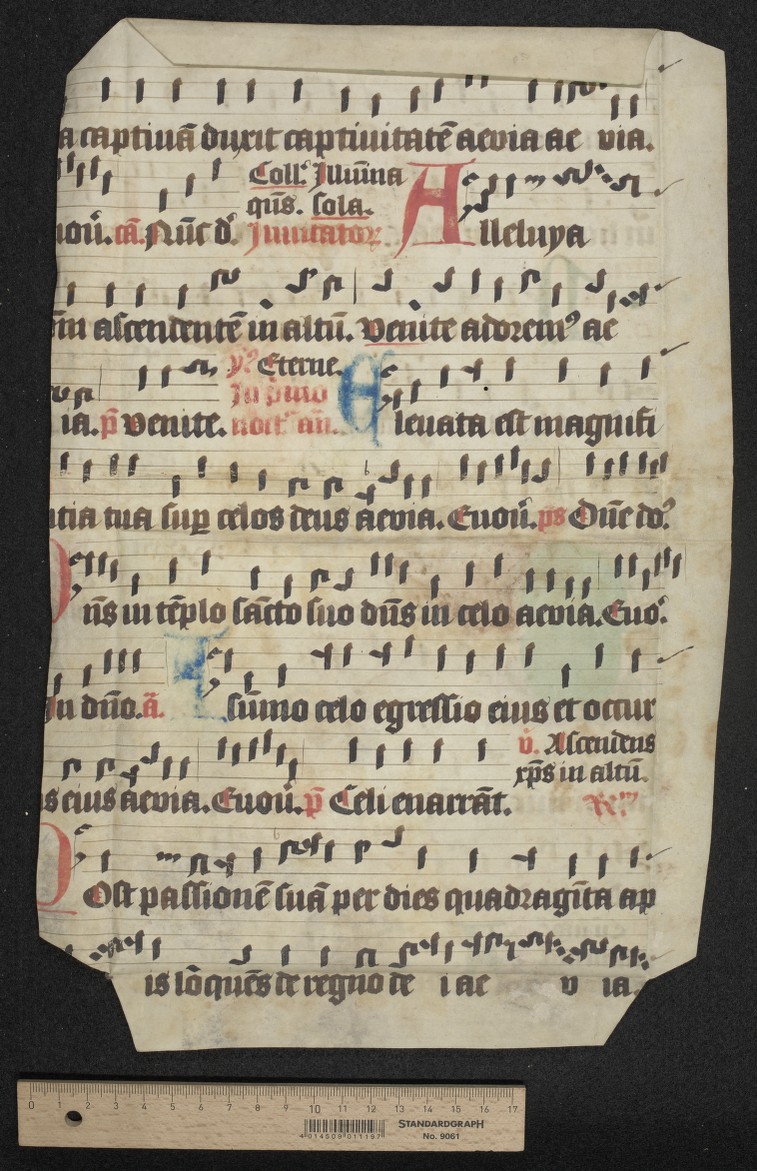 a captiuā duxit captiuitatē aevia ae via.
Coll. Illumīna
qūs. sola.
uoū. cā. Nūc d. Inuitator Alleluya
ascendentē in altū. Venite adorem⁹ ae
Eterne.
In pͥmo
ia. p̄ Venite. noct' an. Eleuata est magnifi
tia tua sup celos deus aevia. Euoū. ps Dn̄e do.
Dn̄s in tēplo sācto suo dn̄s in celo aevia. Euo.
In dn̄o. ā. A sūmo celo egressio eius et occur
v. Ascendens
xp̄s in altū.
s eius aevia. Euoū. p̄ Celi enarrāt.
Post passionē suā per dies quadragīta ap
is lōquēs de regno de i ae v ia.
0 1 2 3 4 5 6 7 8 9 10 11 12 13 14 15 16 17
4 014509 011197
STANDARDGRAPH
No. 9061